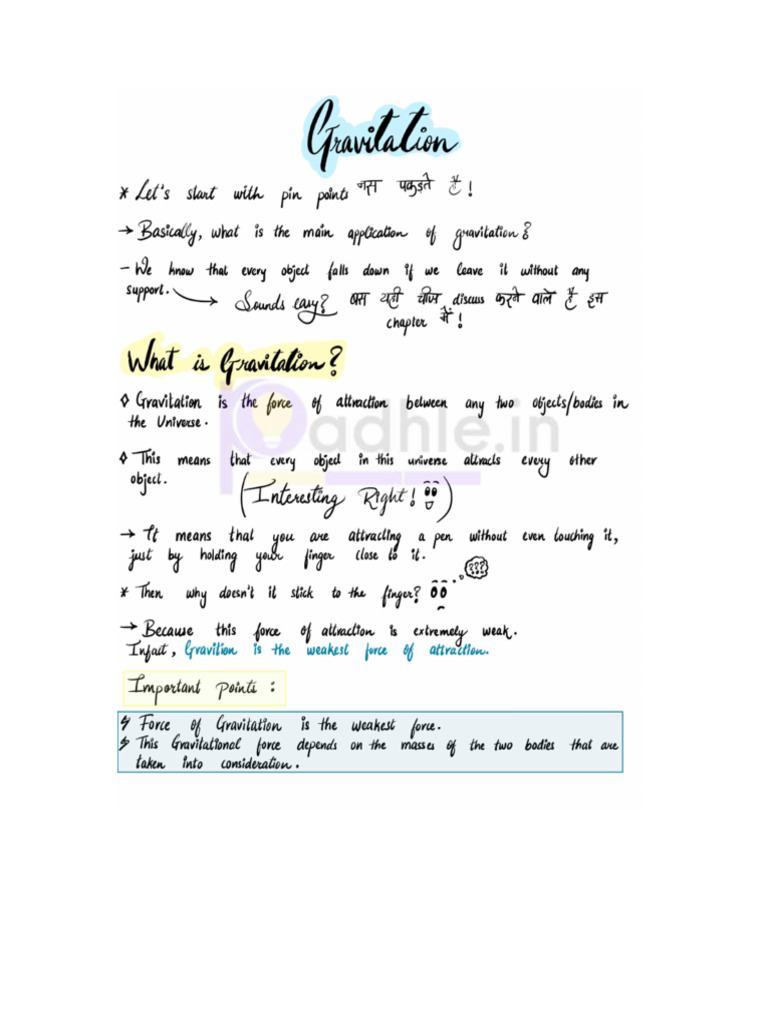 Gravitation
* Let's start with pin points नस पकड़ते है !
→ Basically, what is the main application of gravitation?
- We know that every object falls down if we leave it without any
support. → Sounds easy? बस यही चीज discuss करने वाले है इस
chapter में !
What is Gravitation?
◊ Gravitation is the force of attraction between any two objects/bodies in
the Universe.
padhle.in
◊ This means that every object in this universe attracts every other
object.
(Interesting Right!)
→ It means that you are attracting a pen without even touching it,
just by holding your finger close to it.
???
* Then why doesn't it stick to the finger?
→ Because this force of attraction is extremely weak.
Infact, Gravition is the weakest force of attraction.
Important points :
Force of Gravitation is the weakest force.
This Gravitational force depends on the masses of the two bodies that are
taken into consideration.